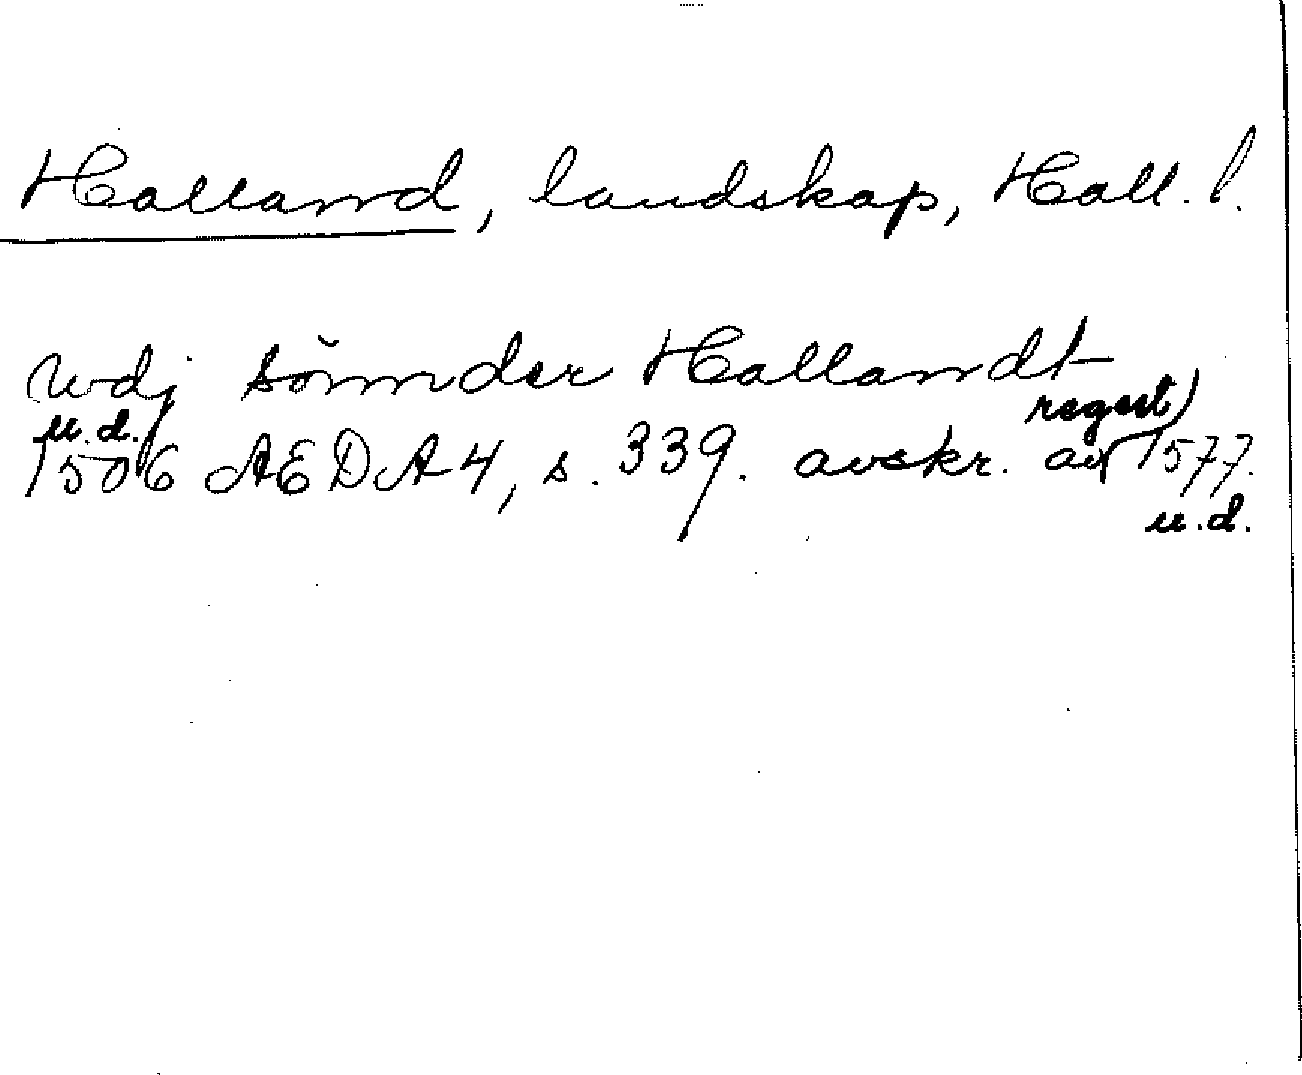 Halland, landskap, Hall. l.
wdj sönnder Hallandt
u.d. regest
1506 AEDA4, s. 339. avskr. av 1577.
u.d.